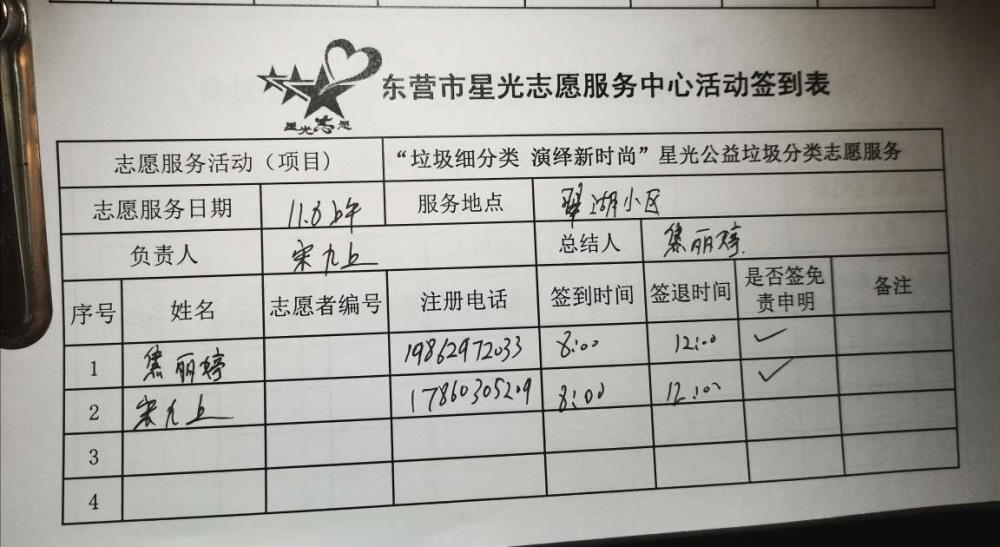 星光志愿
东营市星光志愿服务中心活动签到表
志愿服务活动（项目） “垃圾细分类 演绎新时尚”星光公益垃圾分类志愿服务
志愿服务日期 11.8上午 服务地点 翠湖小区
负责人 宋九上 总结人 焦丽婷
序号 姓名 志愿者编号 注册电话 签到时间 签退时间 是否签免责申明 备注
1 焦丽婷 19862972033 8:00 12:00 ✓
2 宋九上 17860305209 8:00 12:00 ✓
3
4